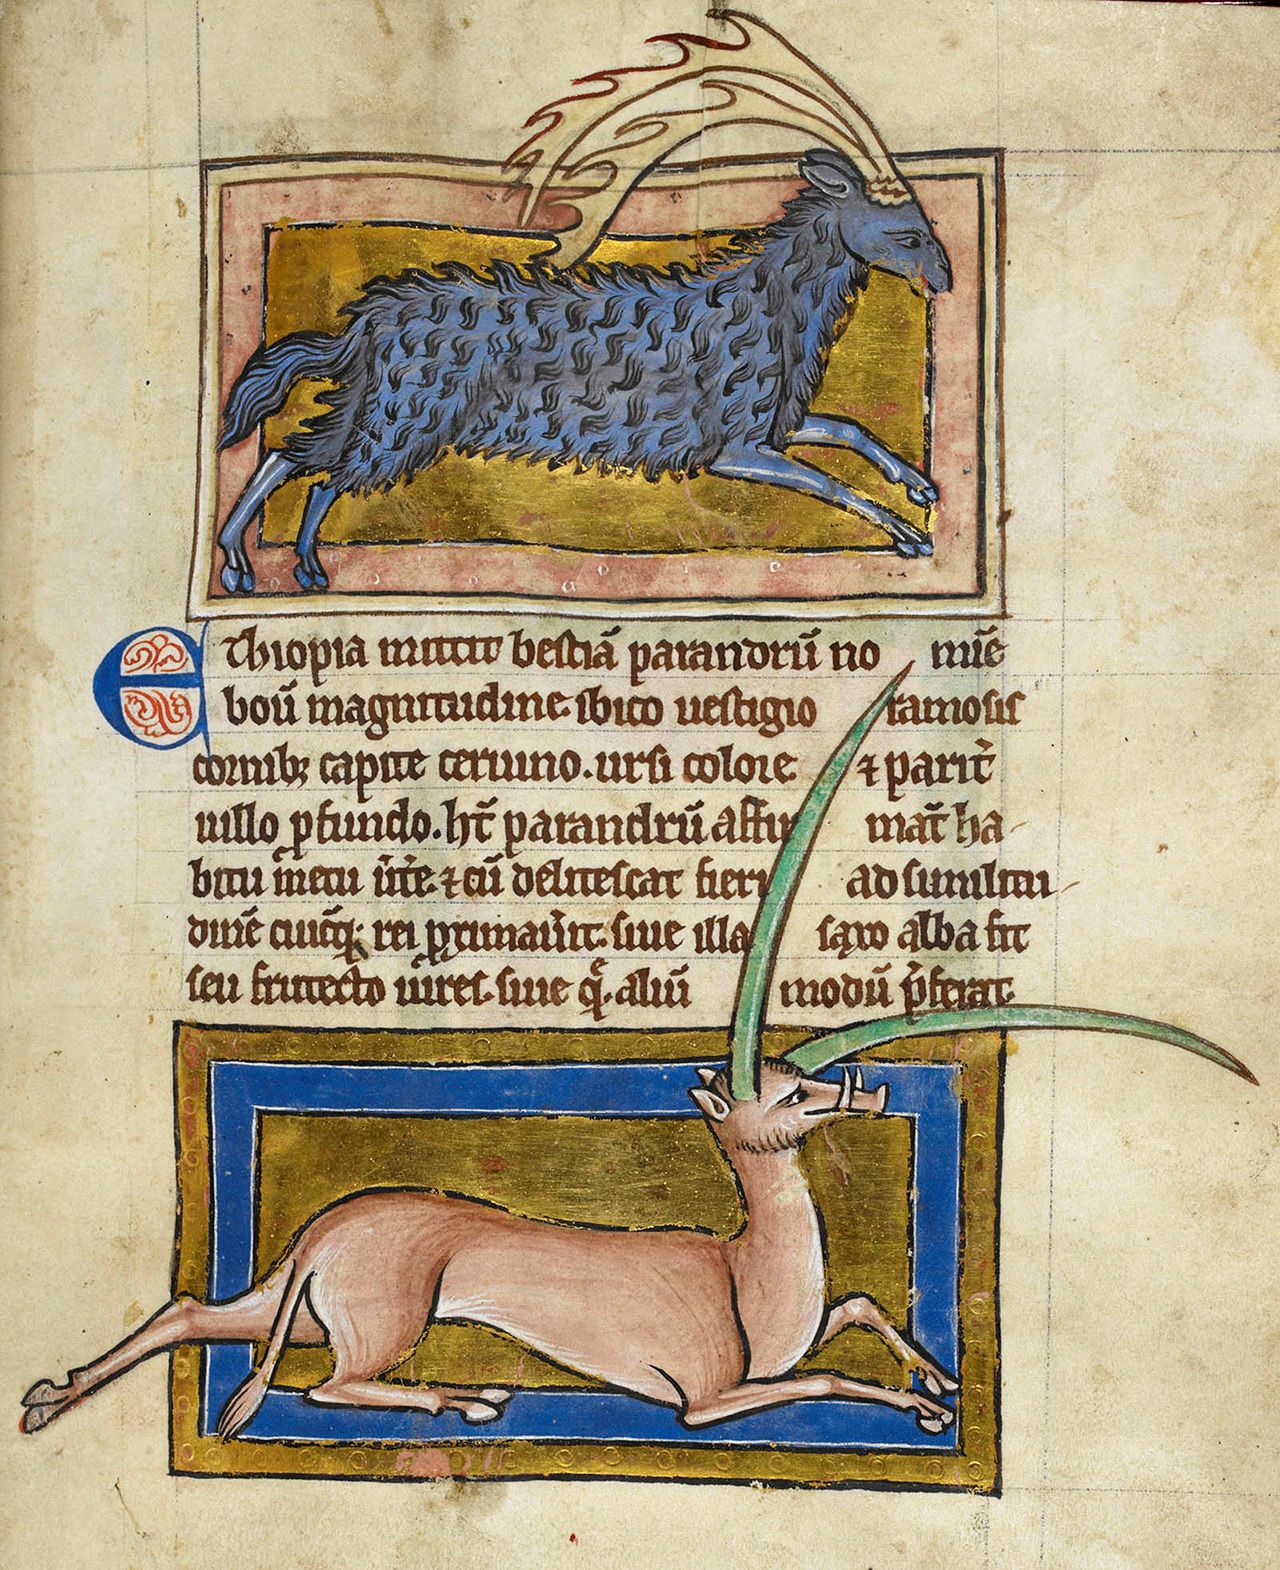 Ethiopia mittit bestiā parandrū no mīe
boū magnitudine. ibico uestigio ramosis
cornibꝫ capite ceruino. ursi colore ⁊ parit̓
uillo ꝓfundo. ht̄ parandrū affir mat̄ ha-
bitū metu ūt̓e. ⁊ cū delitescat fieri ad similitu-
dinē cuicūqꝫ rei ꝓximau̓it. siue illa saxo alba sit
seu frutecto uiret. siue qͣ aliū modū p̄ferat.